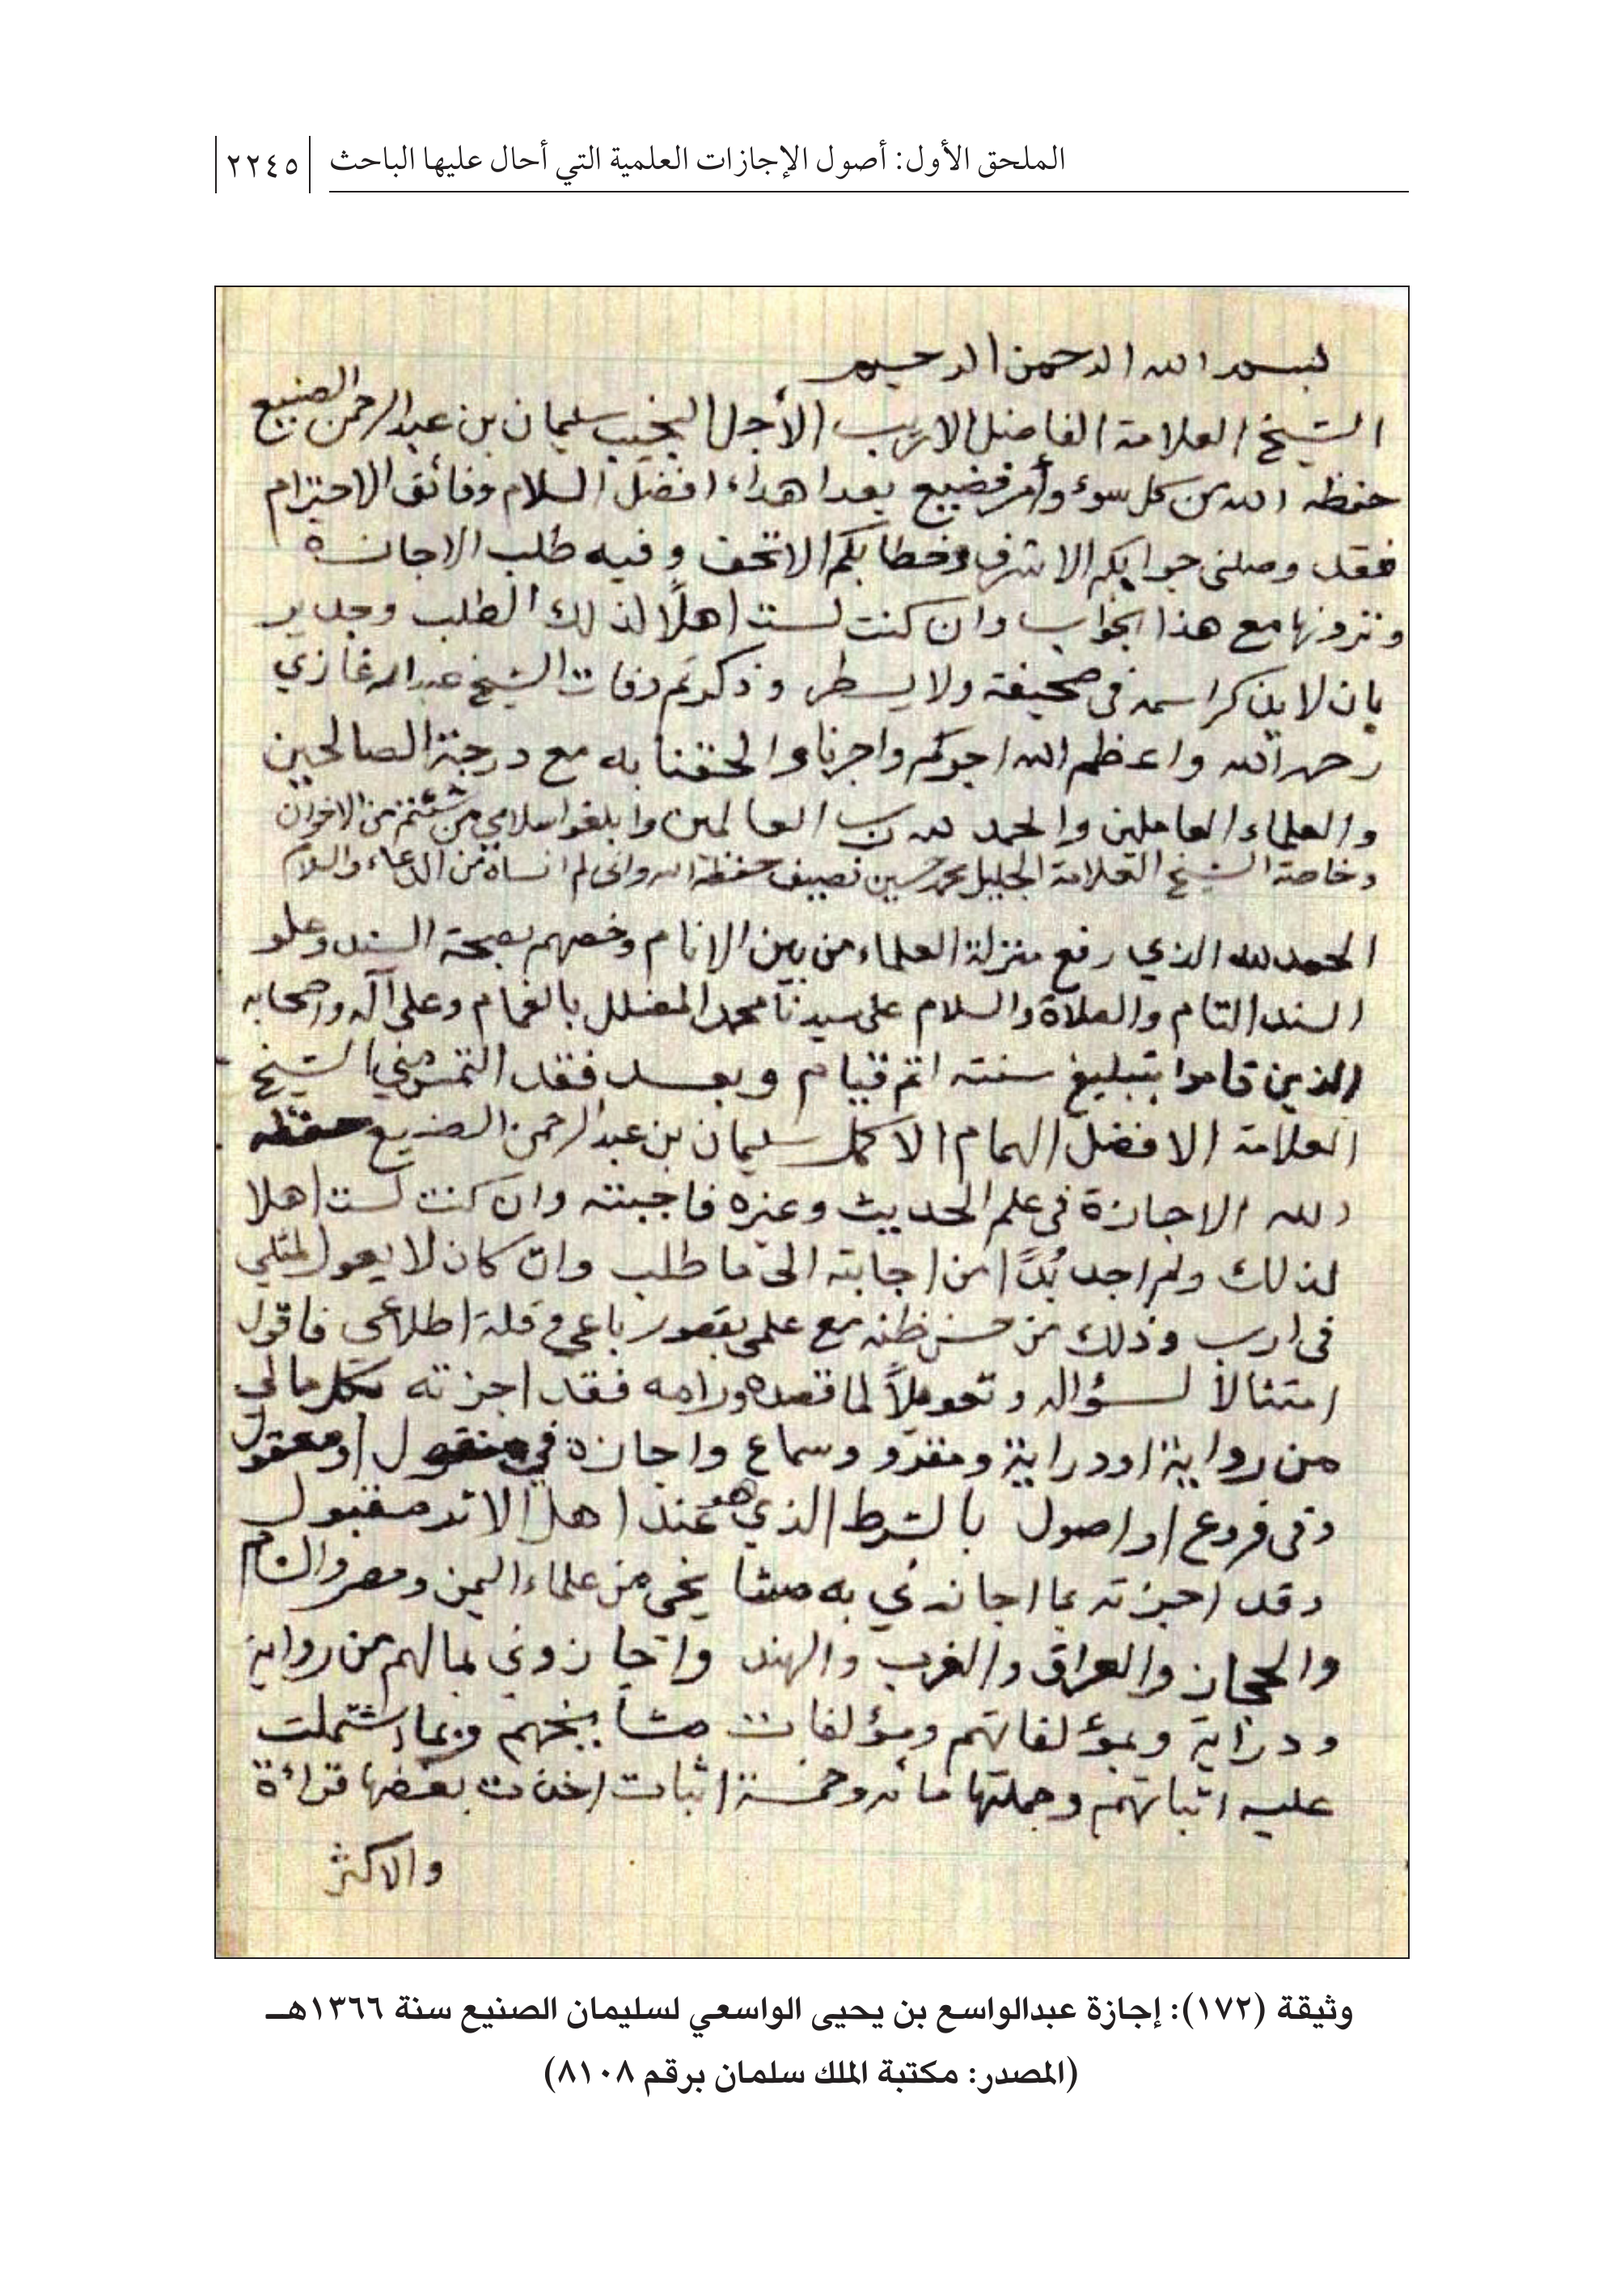 الملحق الأول: أصول الإجازات العلمية التي أحال عليها الباحث ٢٢٤٥
بسم الله الرحمن الرحيم
الشيخ العلامة الفاضل الاريب الأجل النجيب سليمان بن عبدالرحمن الصنيع
حفظه الله من كل سوء وأمر فضيع بعد اهداء افضل السلام وفائق الاحترام
فقد وصلني جوابكم الاشرف وخطابكم الاتحف وفيه طلب الاجازة
وترونها مع هذا الجواب وان كنت لست اهلاً لذلك الطلب وجدير
بان لا يذكر اسمه في صحيفة ولا يسطر وذكرتم وفات الشيخ عبدالله غازي
رحمه الله واعظم الله اجوركم واجرنا والحقنا به مع درجة الصالحين
والعلماء العاملين والحمد لله رب العالمين وابلغوا سلامي من شئتم من الاخوان
وخاصة الشيخ العلامة الجليل محمد حسين نصيف حفظه الله واني لم انساه من الدعاء والسلام
الحمد لله الذي رفع منزلة العلماء من بين الانام وخصهم بصحة السند وعلو
السند التام والصلاة والسلام على سيدنا محمد المضلل بالغمام وعلى آله واصحابه
الذين قاموا بتبليغ سنته اتم قيام وبعد فقد التمس مني الشيخ
العلامة الافضل الهمام الاكمل سليمان بن عبدالرحمن الصنيع حفظه
الله الاجازة في علم الحديث وغيره فاجبته وان كنت لست اهلا
لذلك ولم اجد بُدًّا من اجابته الى ما طلب وان كان لا يعول لمثلي
في ارب وذلك من حسن ظنه مع علمي بقصور باعي وقلة اطلاعي فاقول
امتثالاً لسؤاله وتعويلاً لما قصده ورامه فقد اجزته بكل مالي
من رواية او دراية ومقرو وسماع واجازة في منقول او معقول
وفي فروع او اصول بالشرط الذي هو عند اهل الاثر مقبول
وقد اجزته بما اجازني به مشايخي من علماء اليمن ومصر والشام
والحجاز والعراق والغرب والهند واجازوني بمالهم من رواية
ودراية وبمؤلفاتهم ومؤلفات مشايخهم وبما اشتملت
عليه اثباتهم وجملتها مائه وخمسة اثبات اخذت بعضها قراءة
والاكثر
وثيقة (١٧٢): إجازة عبدالواسع بن يحيى الواسعي لسليمان الصنيع سنة ١٣٦٦هـ
(المصدر: مكتبة الملك سلمان برقم ٨١٠٨)